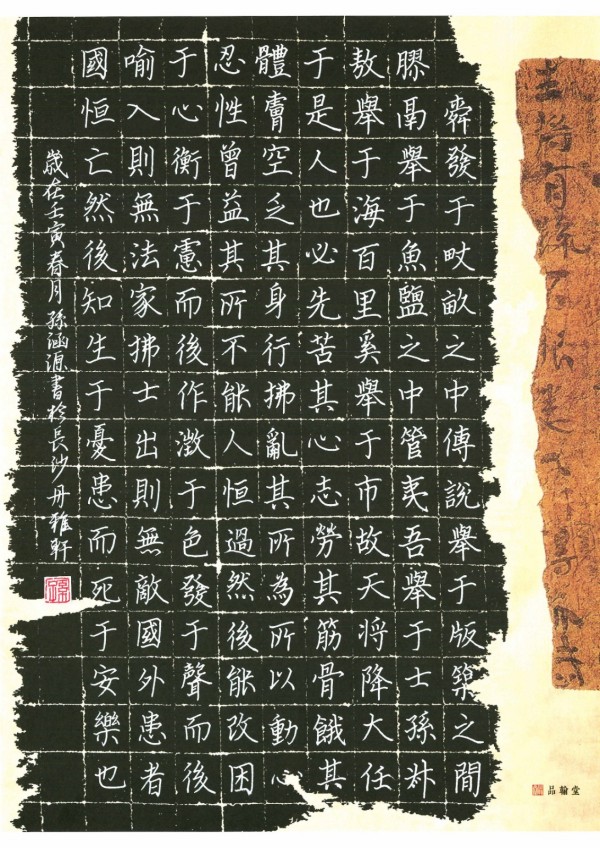 舜發于畎畝之中傅說舉于版築之間
膠鬲舉于魚鹽之中管夷吾舉于士孫叔
敖舉于海百里奚舉于市故天將降大任
于是人也必先苦其心志勞其筋骨餓其
體膚空乏其身行拂亂其所為所以動心
忍性曾益其所不能人恒過然後能改困
于心衡于慮而後作徵于色發于聲而後
喻入則無法家拂士出則無敵國外患者
國恒亡然後知生于憂患而死于安樂也
歲在壬寅春月孫涵源書於長沙丹雅軒
品翰堂